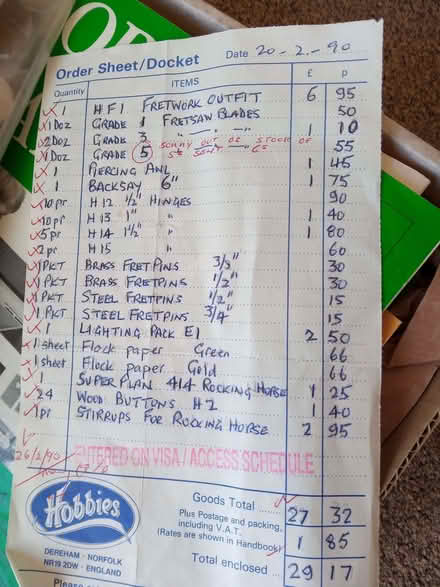 Order Sheet/Docket Date 20-2-90
Quantity ITEMS £ p
1 HF1 FRETWORK OUTFIT 6 95
1 Doz GRADE 1 FRETSAW BLADES 50
2 Doz GRADE 3 " " " 1 10
SORRY OUT OF STOCK OF
1 Doz GRADE 5 55
5s SENT 6s
1 PIERCING AWL 1 45
1 BACKSAY 6" 1 75
10 pr H12 1/2" HINGES 90
10 pr H13 1" " 1 40
5 pr H14 1 1/2" " 1 80
2 pr H15 " 60
1 PKT BRASS FRETPINS 3/8" 30
1 PKT BRASS FRETPINS 1/2" 30
1 PKT STEEL FRETPINS 1/2" 15
1 PKT STEEL FRETPINS 3/4" 15
1 LIGHTING PACK E1 2 50
1 sheet Flock paper Green 66
1 sheet Flock paper Gold 66
1 SUPER PLAN 414 ROCKING HORSE 1 25
24 WOOD BUTTONS H2 1 40
1 pr STIRRUPS FOR ROCKING HORSE 2 95
ENTERED ON VISA / ACCESS SCHEDULE
26/2/90
Hobbies
DEREHAM · NORFOLK
NR19 2DW · ENGLAND
Goods Total 27 32
Plus Postage and packing,
including V.A.T.
(Rates are shown in Handbook) 1 85
Total enclosed 29 17